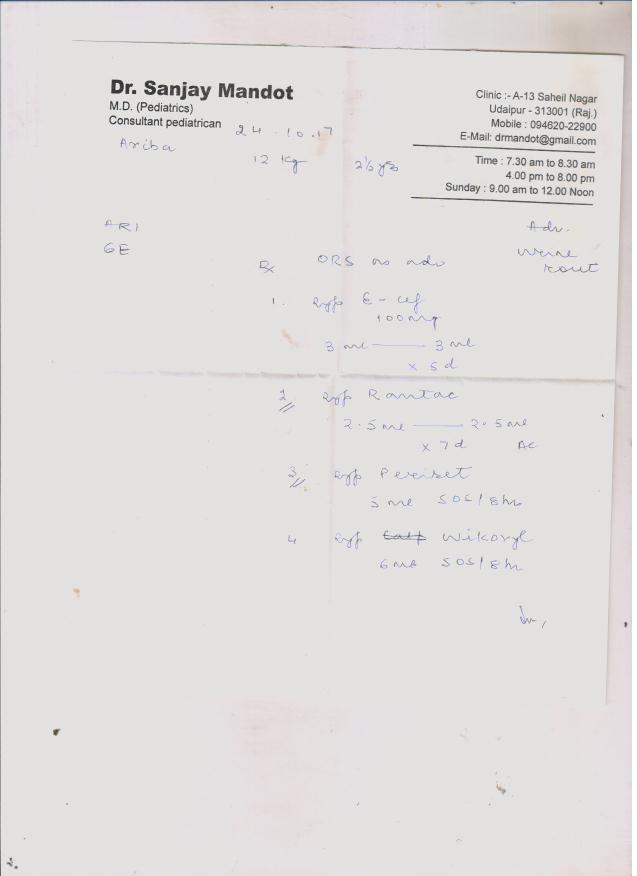 Dr. Sanjay Mandot
M.D. (Pediatrics)
Consultant pediatrican
Clinic :- A-13 Saheil Nagar
Udaipur - 313001 (Raj.)
Mobile : 094620-22900
E-Mail: drmandot@gmail.com
Time : 7.30 am to 8.30 am
4.00 pm to 8.00 pm
Sunday : 9.00 am to 12.00 Noon
24.10.17
Ariba
12 kg 2½ yrs
ARI
GE
Adv.
Urine
rout
Rx ORS as adv
1. Syp E-cef
100mg
3 ml — 3 ml
x 5 d
2 Syp Rantac
2.5 ml — 2.5 ml
x 7 d AC
3 Syp Periset
5 ml SOS/8hr
4 Syp Wikoryl
6 ml SOS/8hr